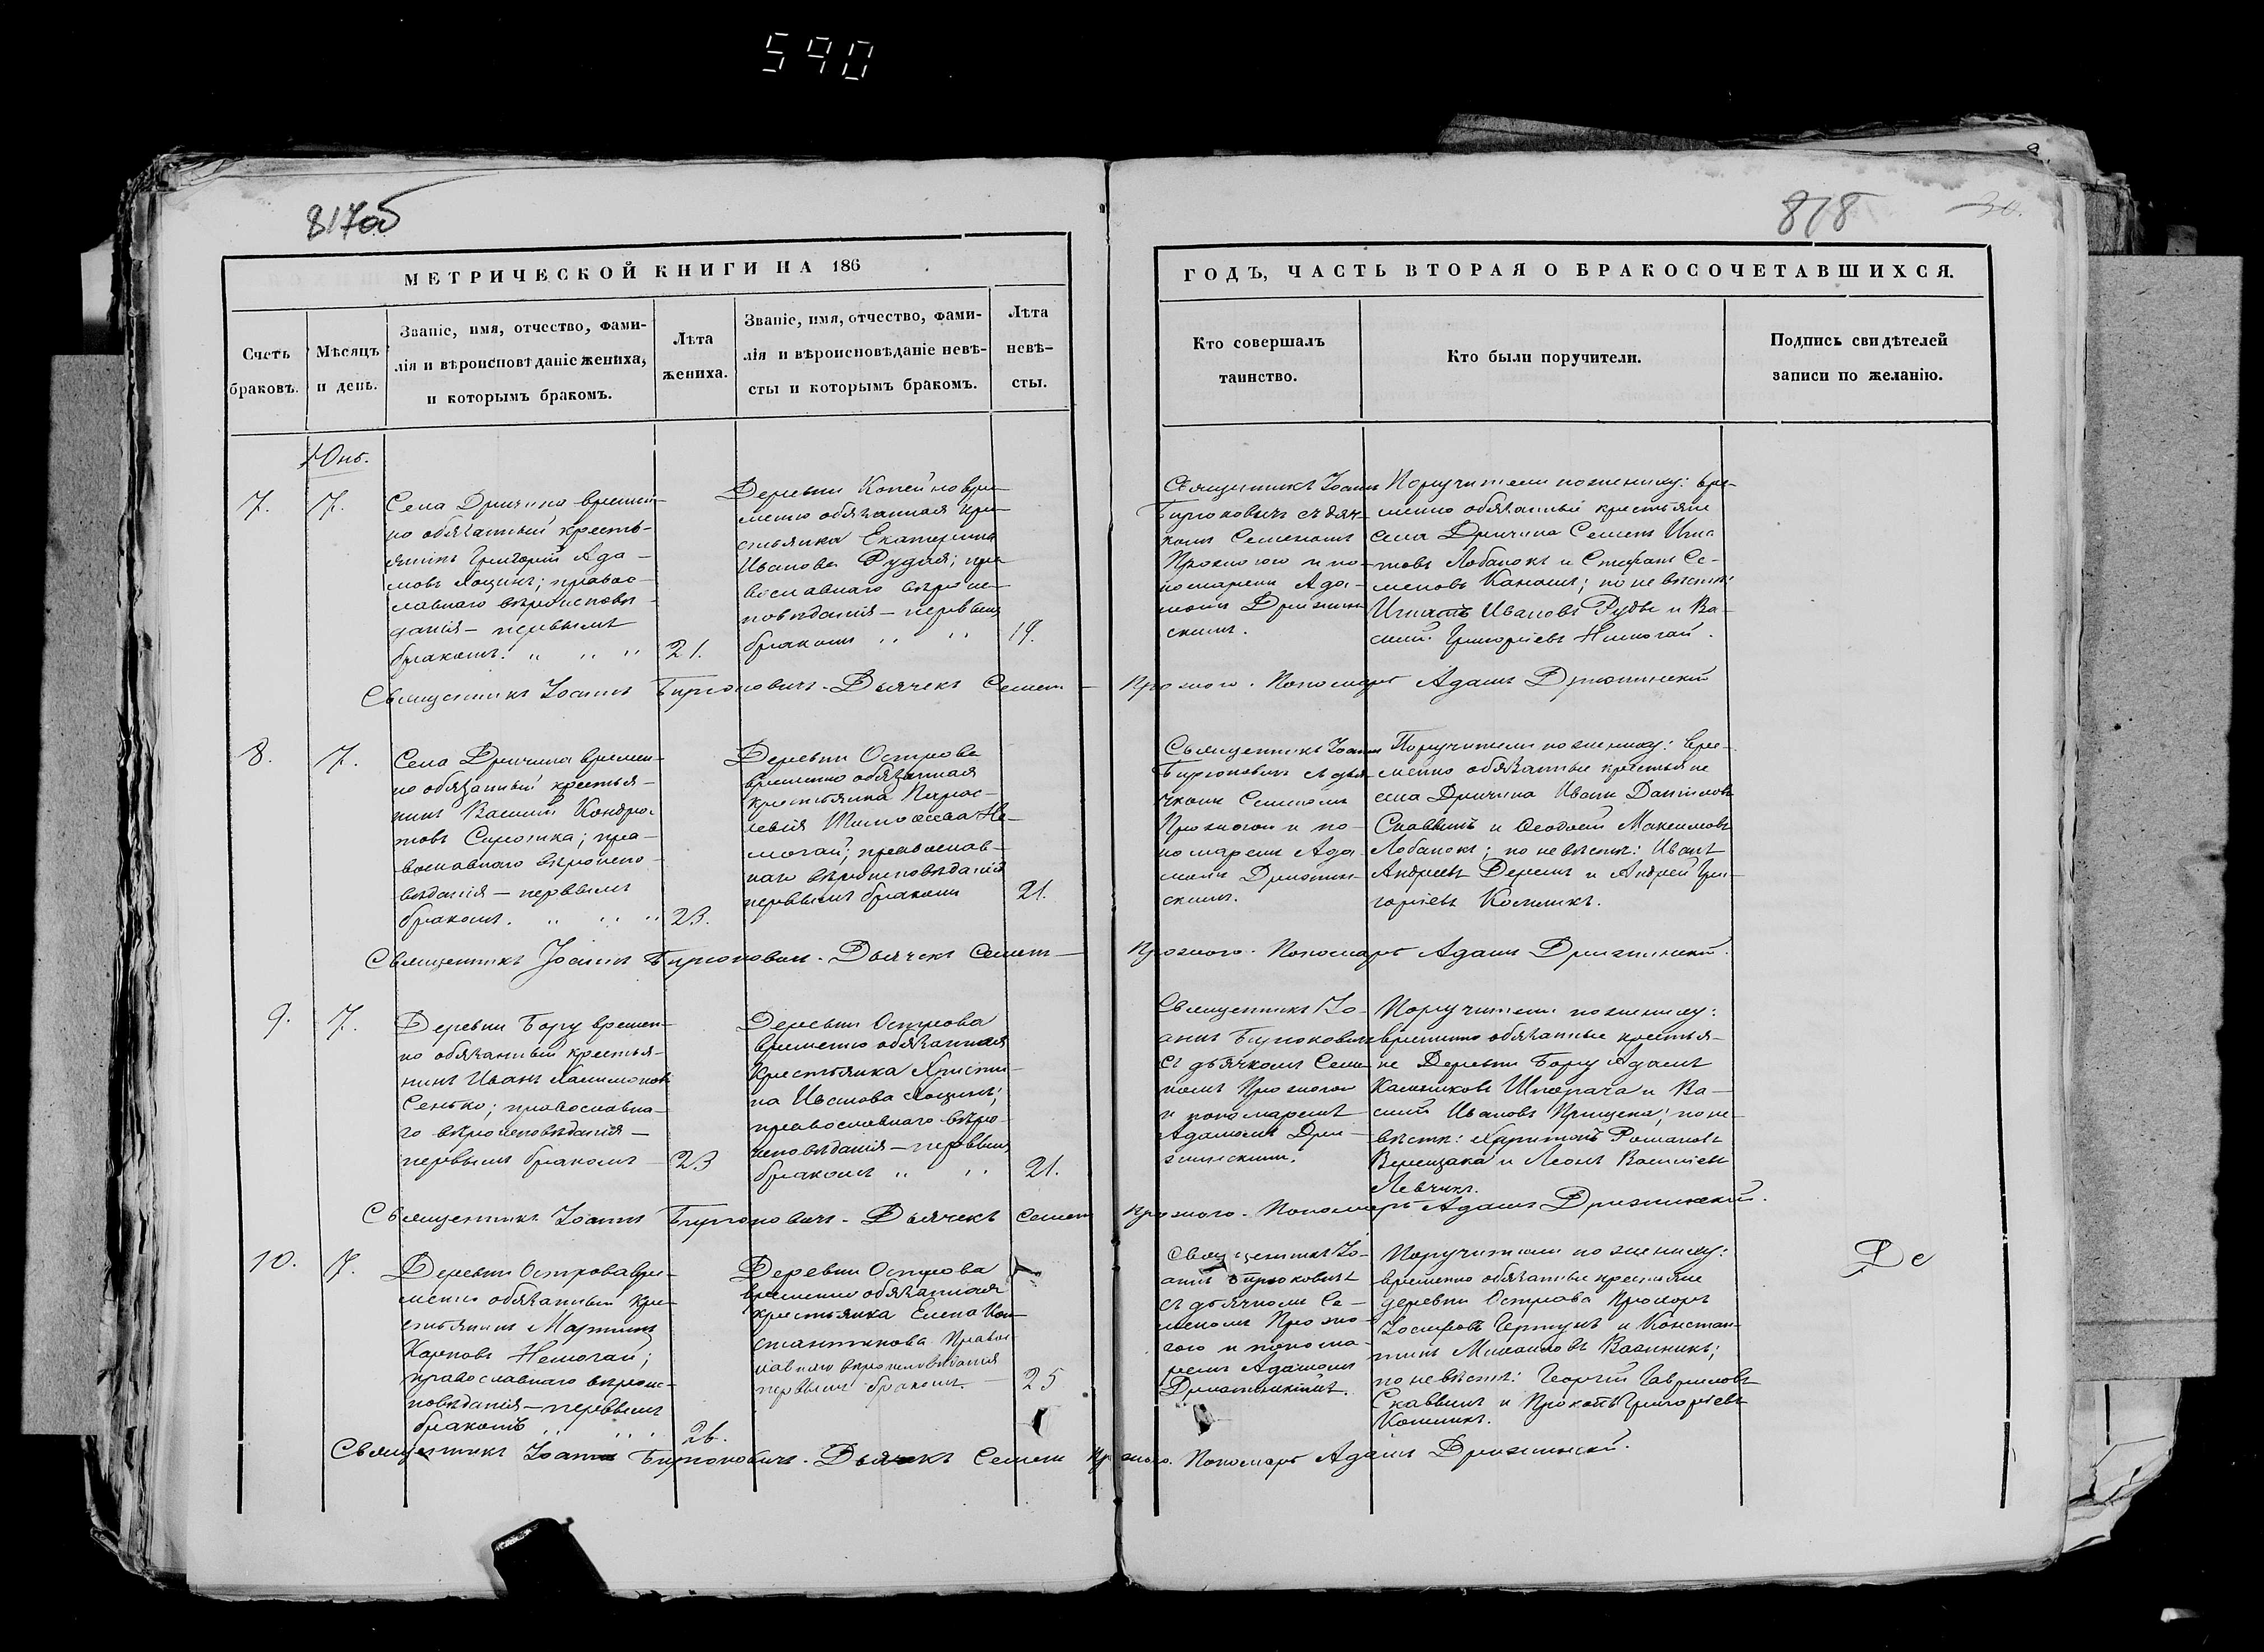 590
817об
818
30.
МЕТРИЧЕСКОЙ КНИГИ НА 186
Счетъ браковъ.
Мѣсяцъ и день.
Званіе, имя, отчество, фами-
лія и вѣроисповѣданіе жениха,
и которымъ бракомъ.
Лѣта жениха.
Званіе, имя, отчество, фами-
лія и вѣроисповѣданіе невѣ-
сты и которымъ бракомъ.
Лѣта невѣ-
сты.
ГОДЪ, ЧАСТЬ ВТОРАЯ О БРАКОСОЧЕТАВШИХСЯ.
Кто совершалъ
таинство.
Кто были поручители.
Подпись свидѣтелей
записи по желанію.
7.
7.
Села Дричина времен-
но обязанный кресть-
янинъ Григорій Ада-
мовъ Хоцикъ; правос-
лавнаго вѣроисповѣ-
данія — первымъ
бракомъ. " " "
21.
Деревни Копейно вре-
менно обязанная кре-
стьянка Екатерина
Иванова Рудая; пра-
вославнаго вѣроис-
повѣданія — первымъ
бракомъ " "
19.
Священникъ Іоаннъ
Бирюковичъ съ дяч-
комъ Семеномъ
и по-
номаремъ Ада-
момъ
скимъ.
Поручители по жениху: вре-
менно обязанные крестьяне
села Дричина Семенъ Игна-
товъ Лобанокъ и Стефанъ Се-
меновъ; по невѣстѣ:
Игнатъ Ивановъ Рудый и Ва-
силій Григоріевъ Немогай.
Священникъ Іоаннъ Бирюковичъ. Дьячекъ Семенъ Пономарь Адамъ
8.
7.
Села Дричина времен-
но обязанный крестья-
нинъ Василій Кондра-
товъ Сиротка; пра-
вославнаго вѣроиспо-
вѣданія — первымъ
бракомъ. " " "
23.
Деревни Острова
временно обязанная
крестьянка Парас-
кевія Тимоѳеева Не-
могай; православ-
наго вѣроисповѣданія
первымъ бракомъ
21.
Священникъ Іоаннъ
Бирюковичъ съ дья-
чкомъ Семеномъ
и по-
номаремъ Ада-
момъ
скимъ.
Поручители по жениху: вре-
менно обязанные крестьяне
села Дричина Иванъ Даниловъ
и Ѳеодосій Максимовъ
Лобанокъ; по невѣстѣ: Иванъ
Андреевъ и Андрей Гри-
горіевъ
Священникъ Іоаннъ Бирюковичъ. Дьячекъ Семенъ Пономарь Адамъ
9.
7.
Деревни Бору времен-
но обязанный крестья-
нинъ Иванъ
Сенько; православна-
го вѣроисповѣданія —
первымъ бракомъ
23
Деревни Острова
временно обязанная
крестьянка Христи-
на Иванова Хоцикъ;
православнаго вѣро-
исповѣданія — первымъ
бракомъ " "
21.
Священникъ Іо-
аннъ Бирюковичъ
съ дьячкомъ Семе-
номъ
и пономаремъ
Адамомъ
Поручители по жениху:
временно обязанные крестья-
не Деревни Бору Адамъ
и Ва-
силій Ивановъ; по не-
вѣстѣ: Харитонъ Романовъ
Верещака и Леонъ Василіевъ
Левчикъ.
Священникъ Іоаннъ Бирюковичъ. Дьячекъ Семенъ Пономарь Адамъ
10.
7.
Деревни Острова вре-
менно обязанный кре-
стьянинъ Мартинъ
Карповъ Немогай;
православнаго вѣроис-
повѣданія — первымъ
бракомъ " "
26.
Деревни Острова
временно обязанная
крестьянка Елена Кон-
стантинова Правос-
лавнаго вѣроисповѣданія
первымъ бракомъ. —
25
Священникъ Іо-
аннъ Бирюковичъ
съ дьячкомъ Се-
меномъ
и понома-
ремъ Адамомъ
Поручители по жениху:
временно обязанные крестьяне
деревни Острова Прохоръ
Іосифовъ и Констан-
тинъ;
по невѣстѣ: Георгій Гавриловъ
и Прокопъ Григоріевъ
Де
Священникъ Іоаннъ Бирюковичъ. Дьячекъ Семенъ Пономарь Адамъ